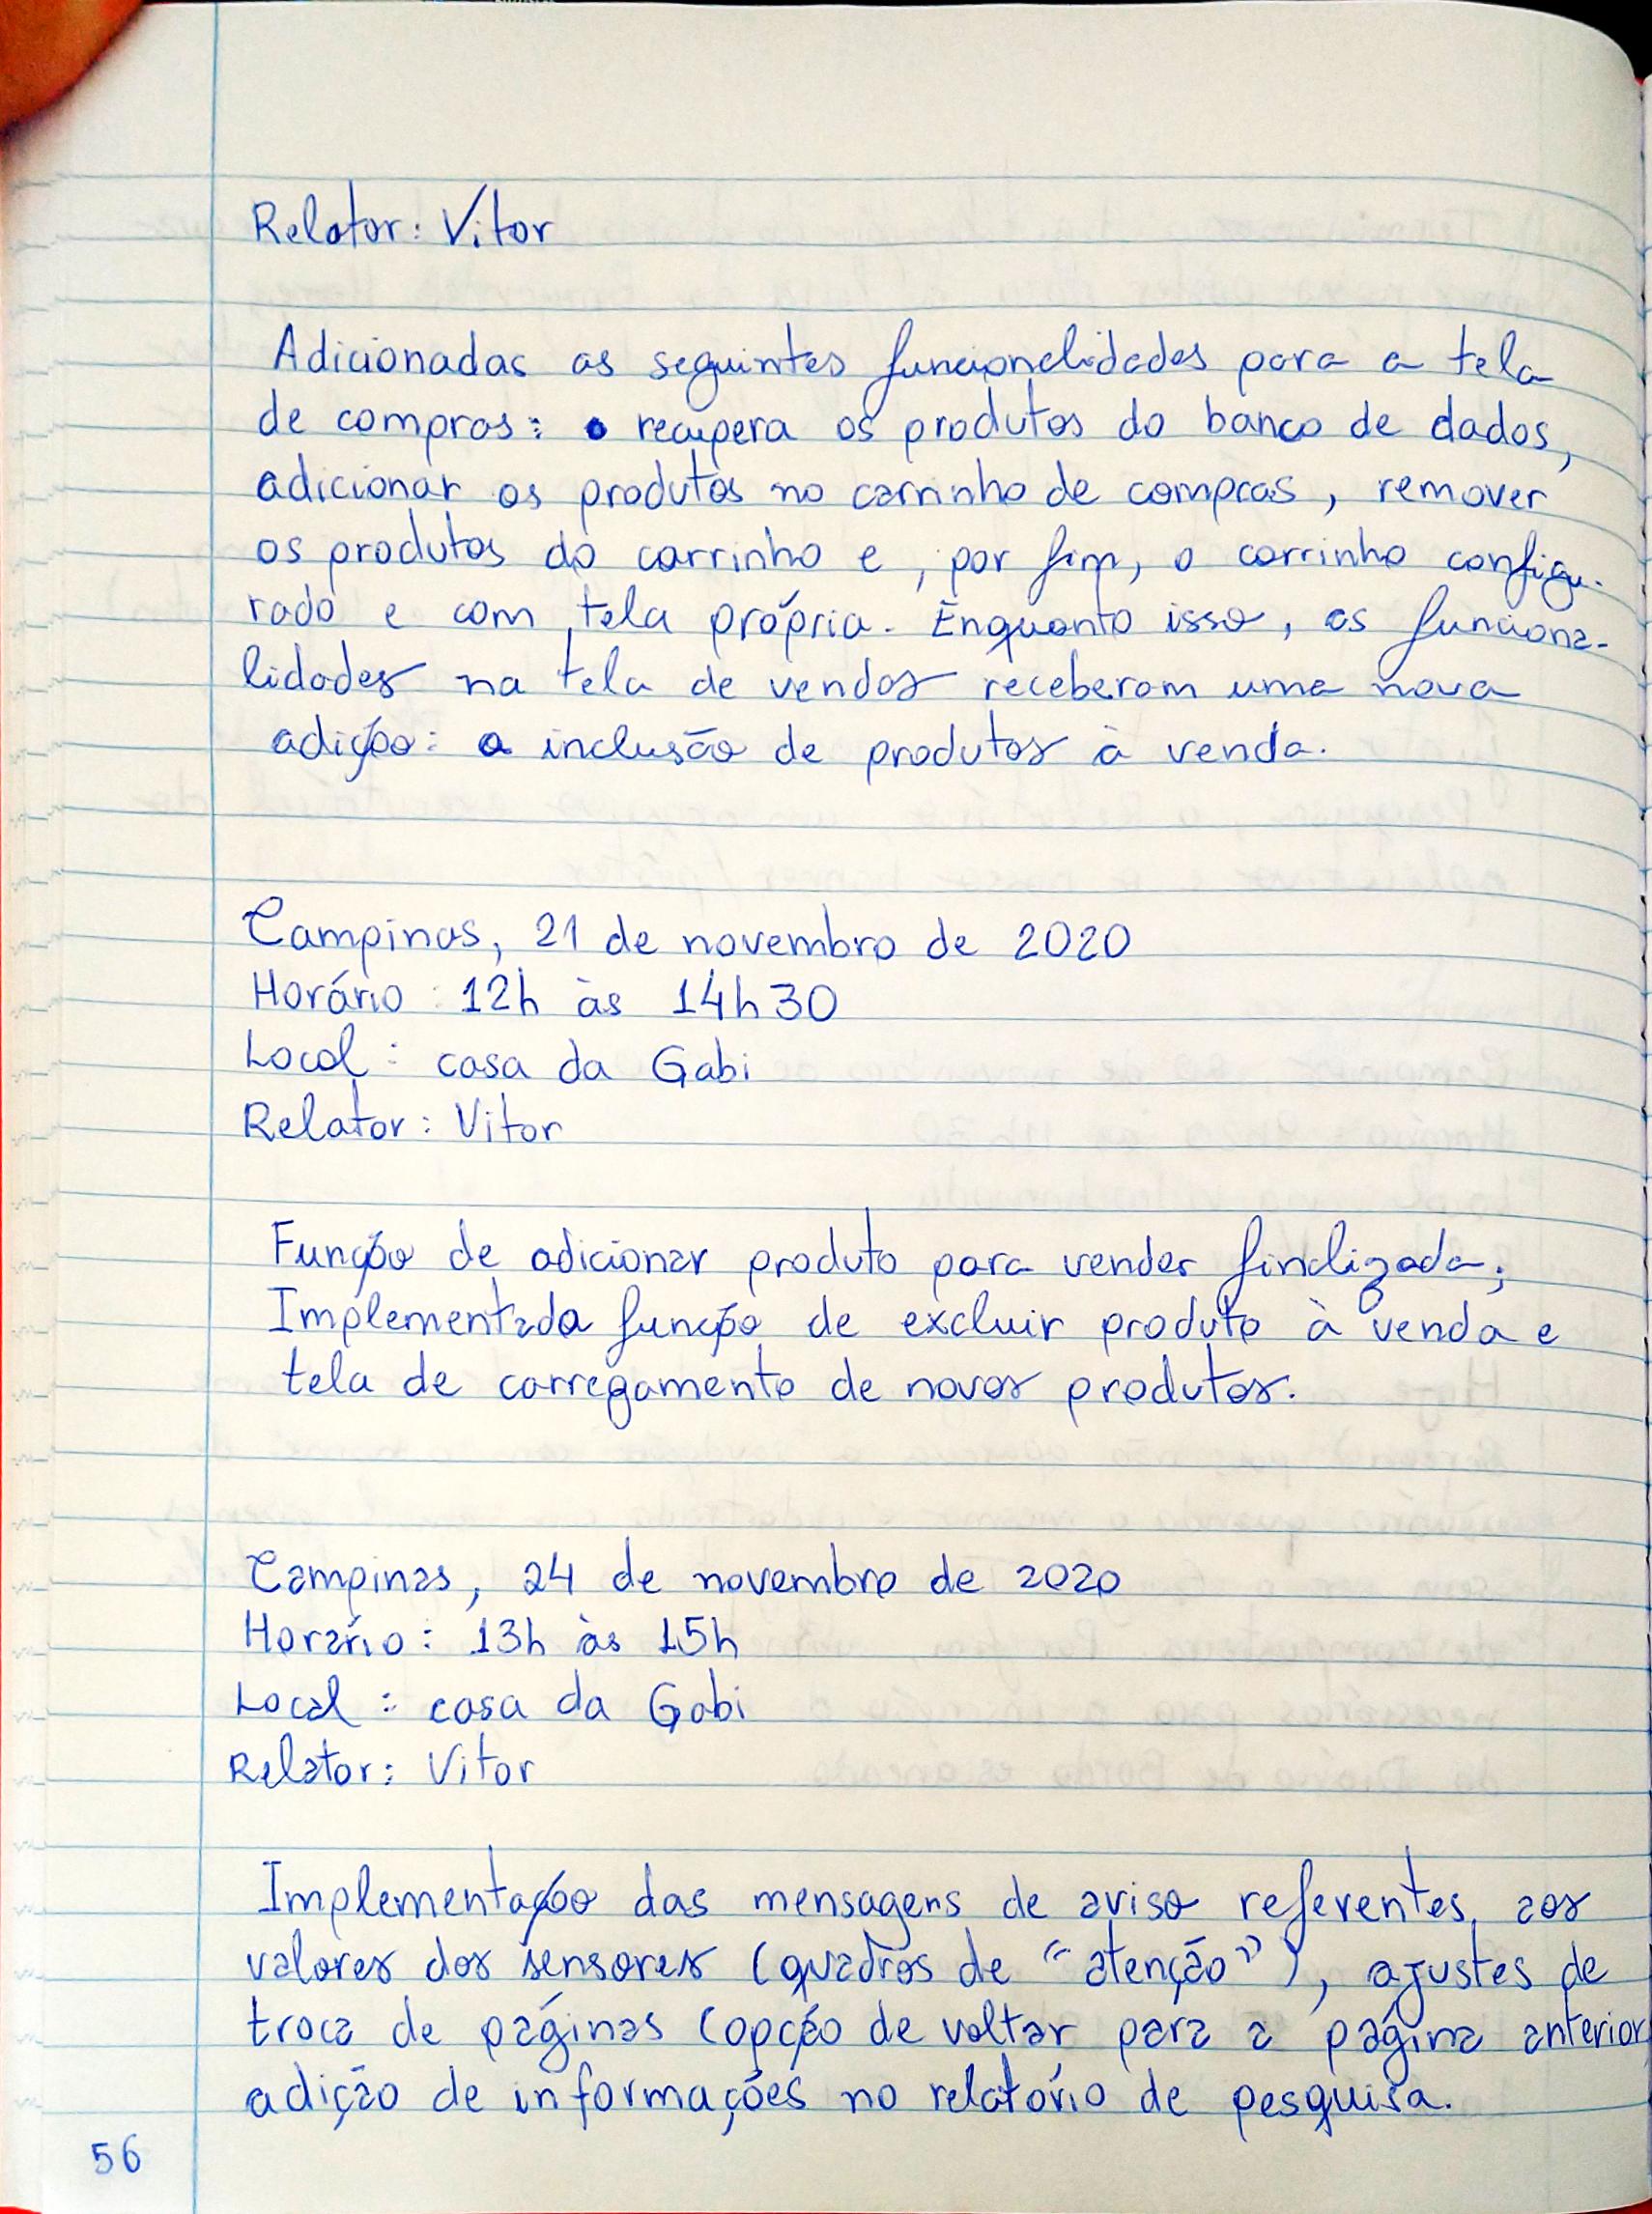 Relator: Vitor
Adicionadas as seguintes funcionalidades para a tela
de compras: o recupera os produtos do banco de dados,
adicionar os produtos no carrinho de compras, remover
os produtos do carrinho e, por fim, o carrinho configu-
rado e com tela própria. Enquanto isso, as funciona-
lidades na tela de vendas receberam uma nova
adição: a inclusão de produtos à venda.
Campinas, 21 de novembro de 2020
Horário: 12h às 14h30
Local: casa da Gabi
Relator: Vitor
Função de adicionar produto para vender finalizada;
Implementada função de excluir produto à venda e
tela de carregamento de novos produtos.
Campinas, 24 de novembro de 2020
Horário: 13h às 15h
Local: casa da Gabi
Relator: Vitor
Implementação das mensagens de aviso referentes aos
valores dos sensores (quadros de "atenção"), ajustes de
troca de páginas (opção de voltar para a página anterior
adição de informações no relatório de pesquisa.
56